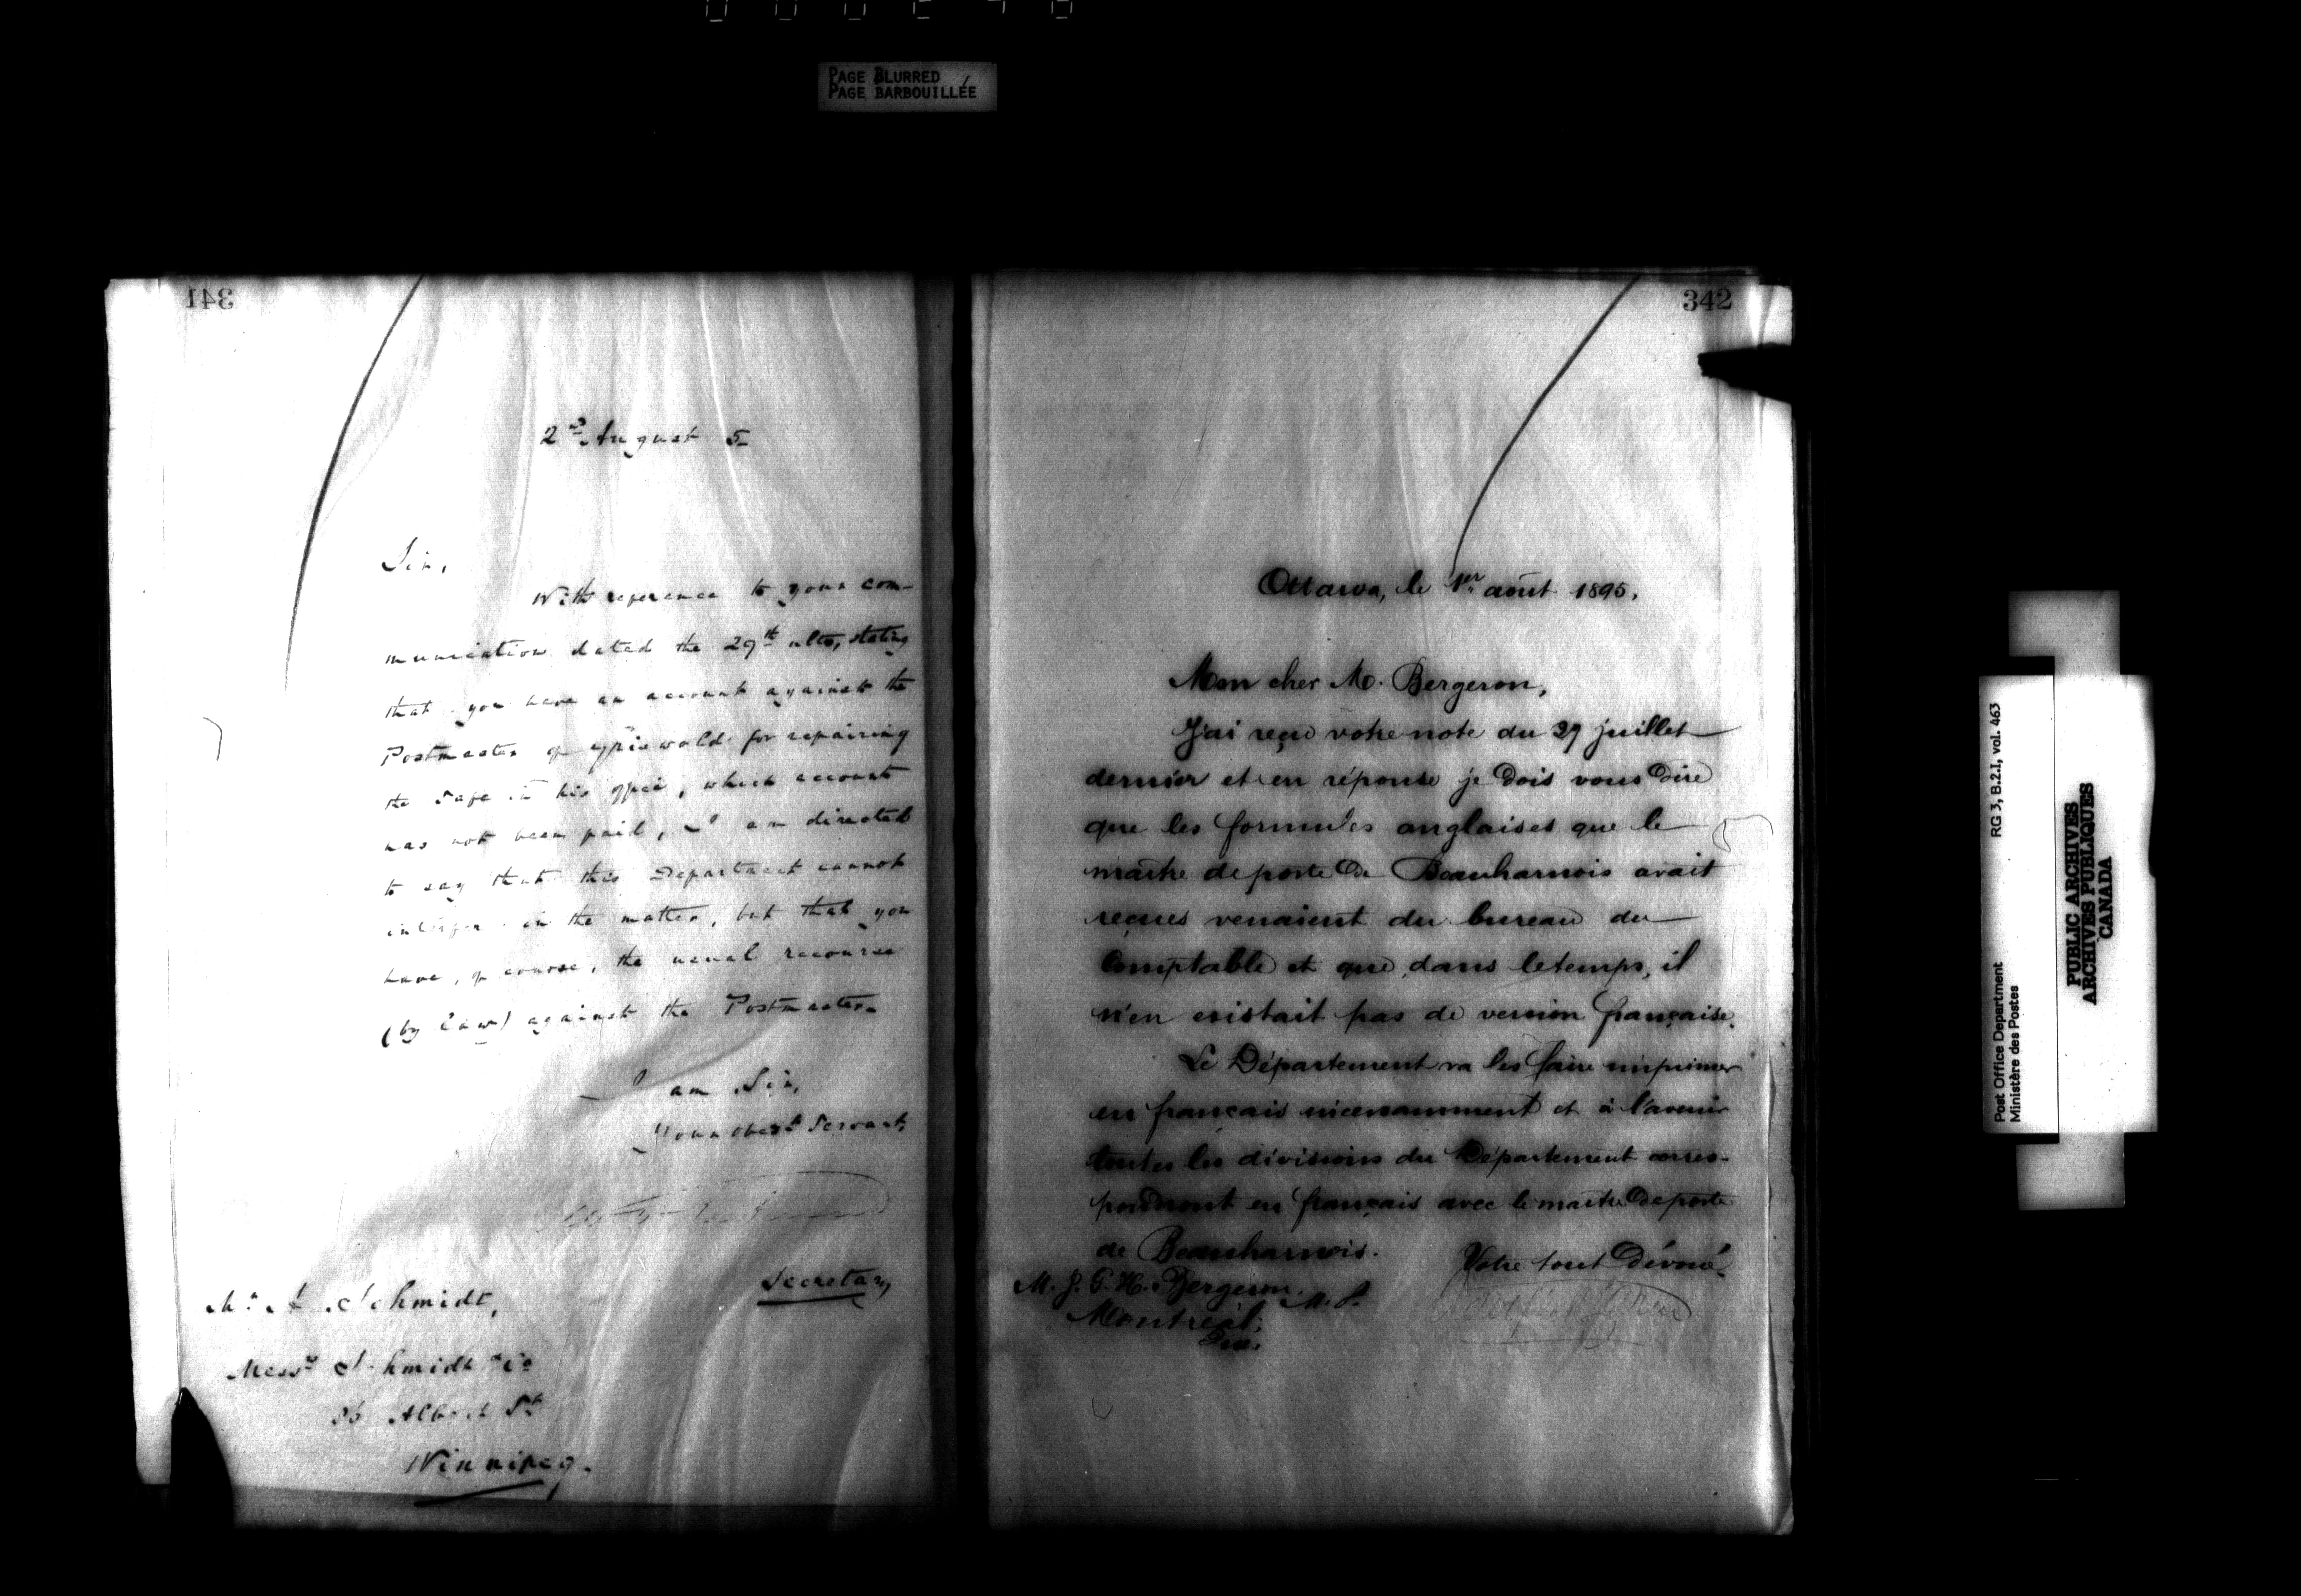 PAGE BLURRED
PAGE BARBOUILLÉE
341
2nd August 5
Sir,
With reference to your com-
munication dated the 29th ulto, stating
that you have an account against the
Postmaster of Griswold for repairing
the safe in his office, which account
has not been paid, I am directed
to say that this Department cannot
interfere in the matter, but that you
have, of course, the usual recourse
(by law) against the Postmaster.
I am Sir,
Your obedt Servant,
Secretary
Mr A Schmidt,
Messrs Schmidt & Co
86 Albert St
Winnipeg.
342
Ottawa, le 1er août 1895.
Mon cher M. Bergeron,
J'ai reçu votre note du 29 juillet
dernier et en réponse je dois vous dire
que les formules anglaises que le
maître de poste de Beauharnois avait
reçues venaient du bureau du
Comptable et que, dans le temps, il
n'en existait pas de version française.
Le Département va les faire imprimer
en français incessamment et à l'avenir
toutes les divisions du Département corres-
pondront en français avec le maître de poste
de Beauharnois.
Votre tout dévoué
M. J. G. H. Bergeron, M.P.
Montréal,
Que.
Post Office Department
Ministère des Postes
RG 3, B.2.I, vol. 463
PUBLIC ARCHIVES
ARCHIVES PUBLIQUES
CANADA